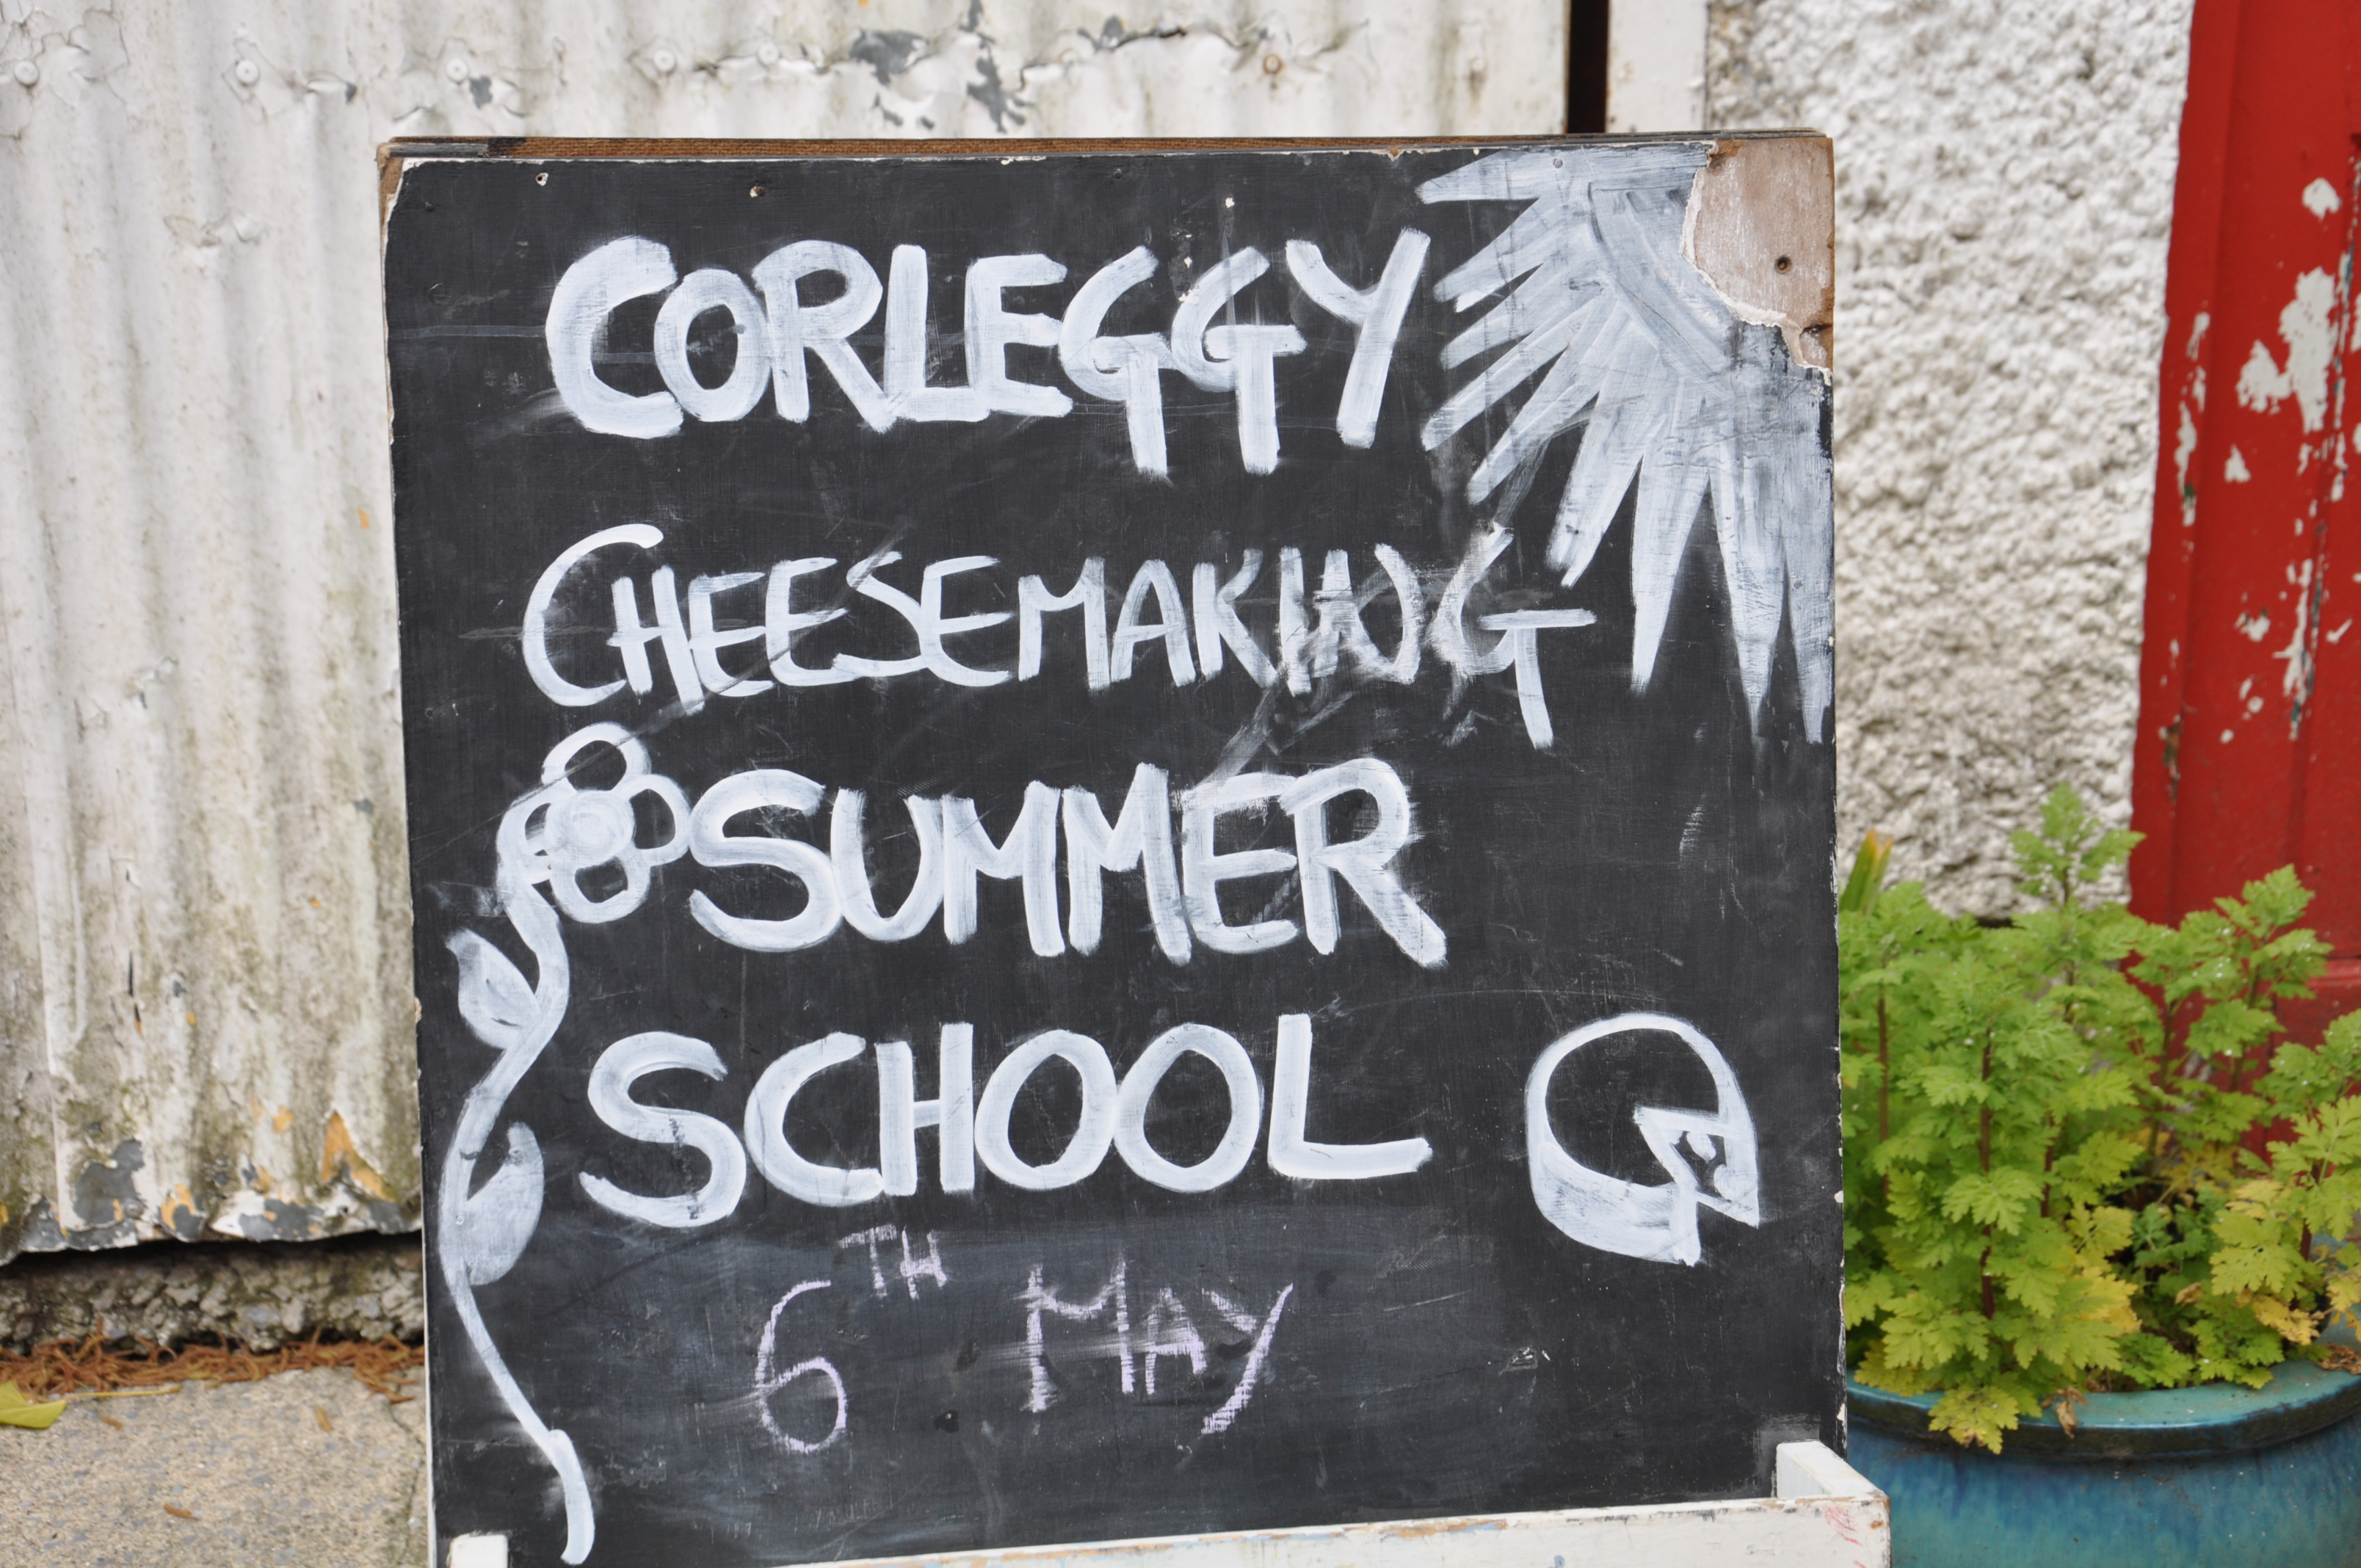 CORLEGGY
CHEESEMAKING
SUMMER
SCHOOL
6TH MAY